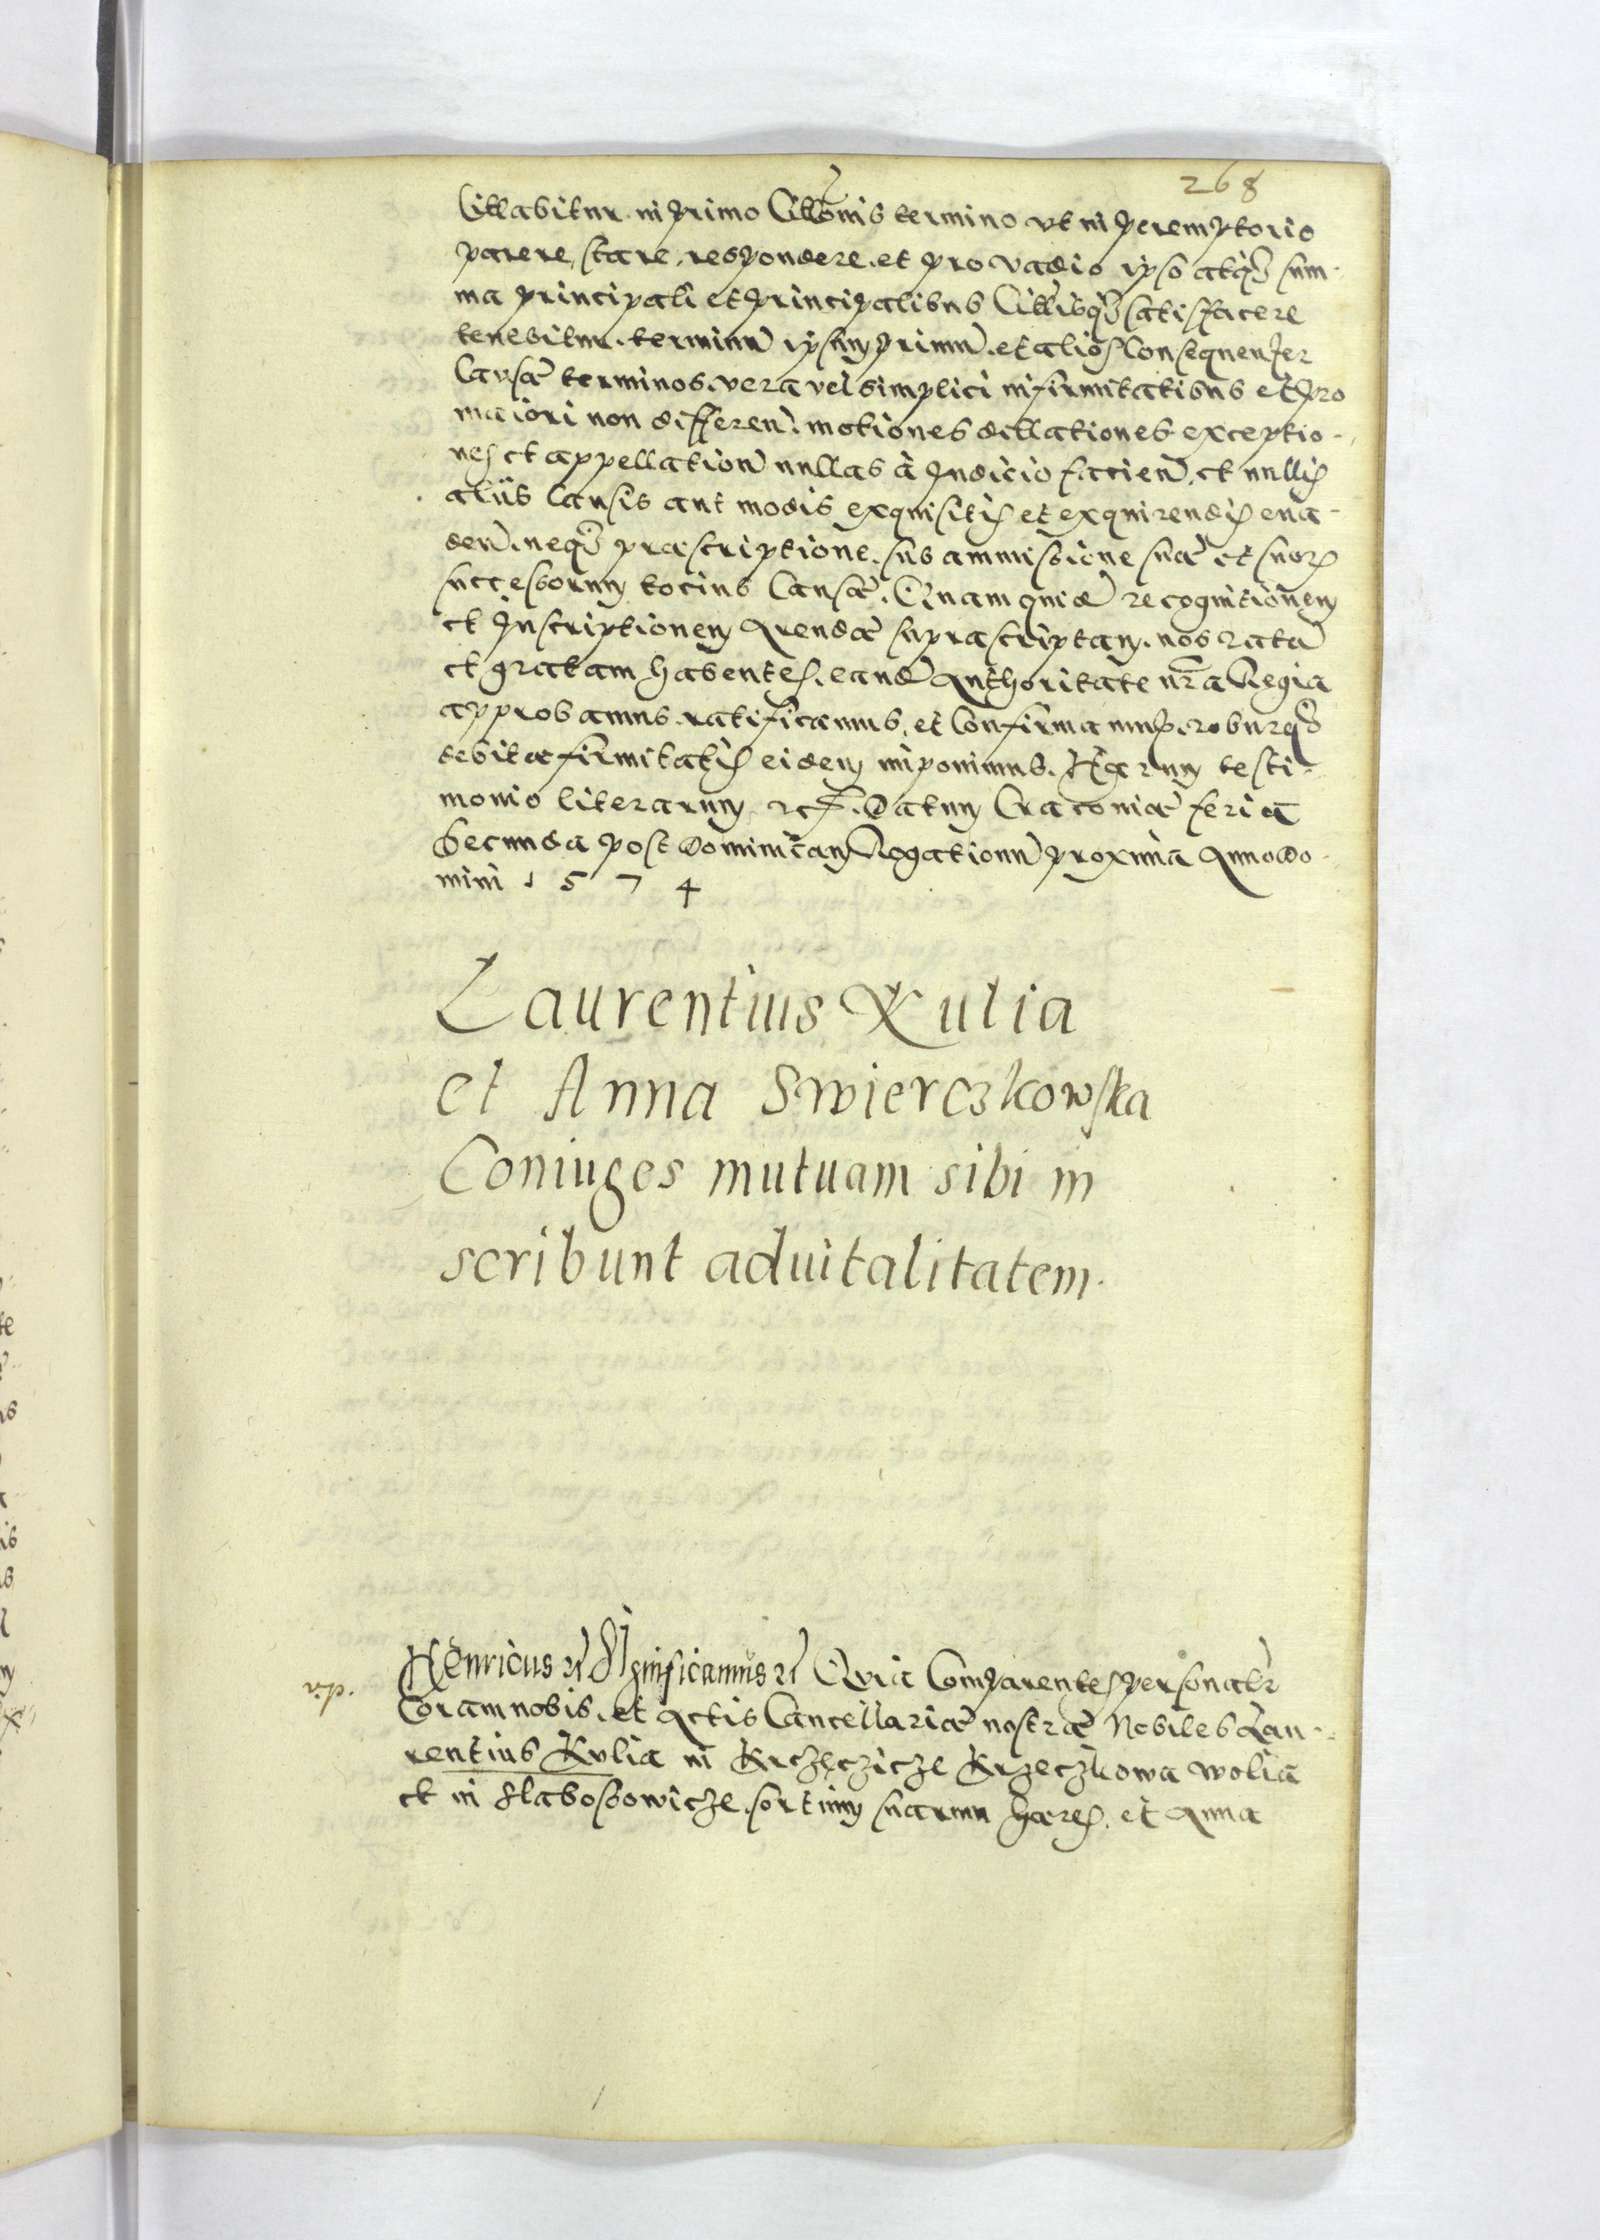 268
Cittabitur in primo Cittonis termino ut in peremptorio
parere, stare, respondere, et pro vadio ipso atq́ sum-
ma principali et principalibus Cittibq́ satisfacere
tenebitur. terminũ ipsum primũ, et alios consequenter
Causæ terminos, vera vel simplici infirmitatibus et pro
maiori non differeñ. motiones dillationes exceptio-
nes et appellationũ nullas à Judicio facieñ, et nullis
alijs Causis aut modis exquisitis et exquirendis eua-
deñ. neq́ præscriptione, sub ammissione suæ et suor
successorum tocius Causæ. Quam quidẽ recognitionem
et Inscriptionem Arendæ suprascriptam, nos ratã
et gratam habentes, eandẽ Authoritate nr̃a Regia
approbamus, ratificamus, et Confirmamus, roburq́
debitæ firmitatis eidem imponimus. Harum testi-
monio literarum etc. Datum Cracouiæ feria
Secunda post Dominicam Rogationũ proxima Anno Do-
mini 1574
Laurentius Kulia
et Anna Swierczkowska
Coniuges mutuam sibi in
scribunt aduitalitatem.
Henricus etc Significamus etc Quia Comparentes personalr
Coram nobis, et Actis Cancellariæ nostræ Nobiles Lau-
rentius Kulia in Krzeczicze Krzeczkowa Wolia
et in Slabossowicze sortium suarum hæres, et Anna